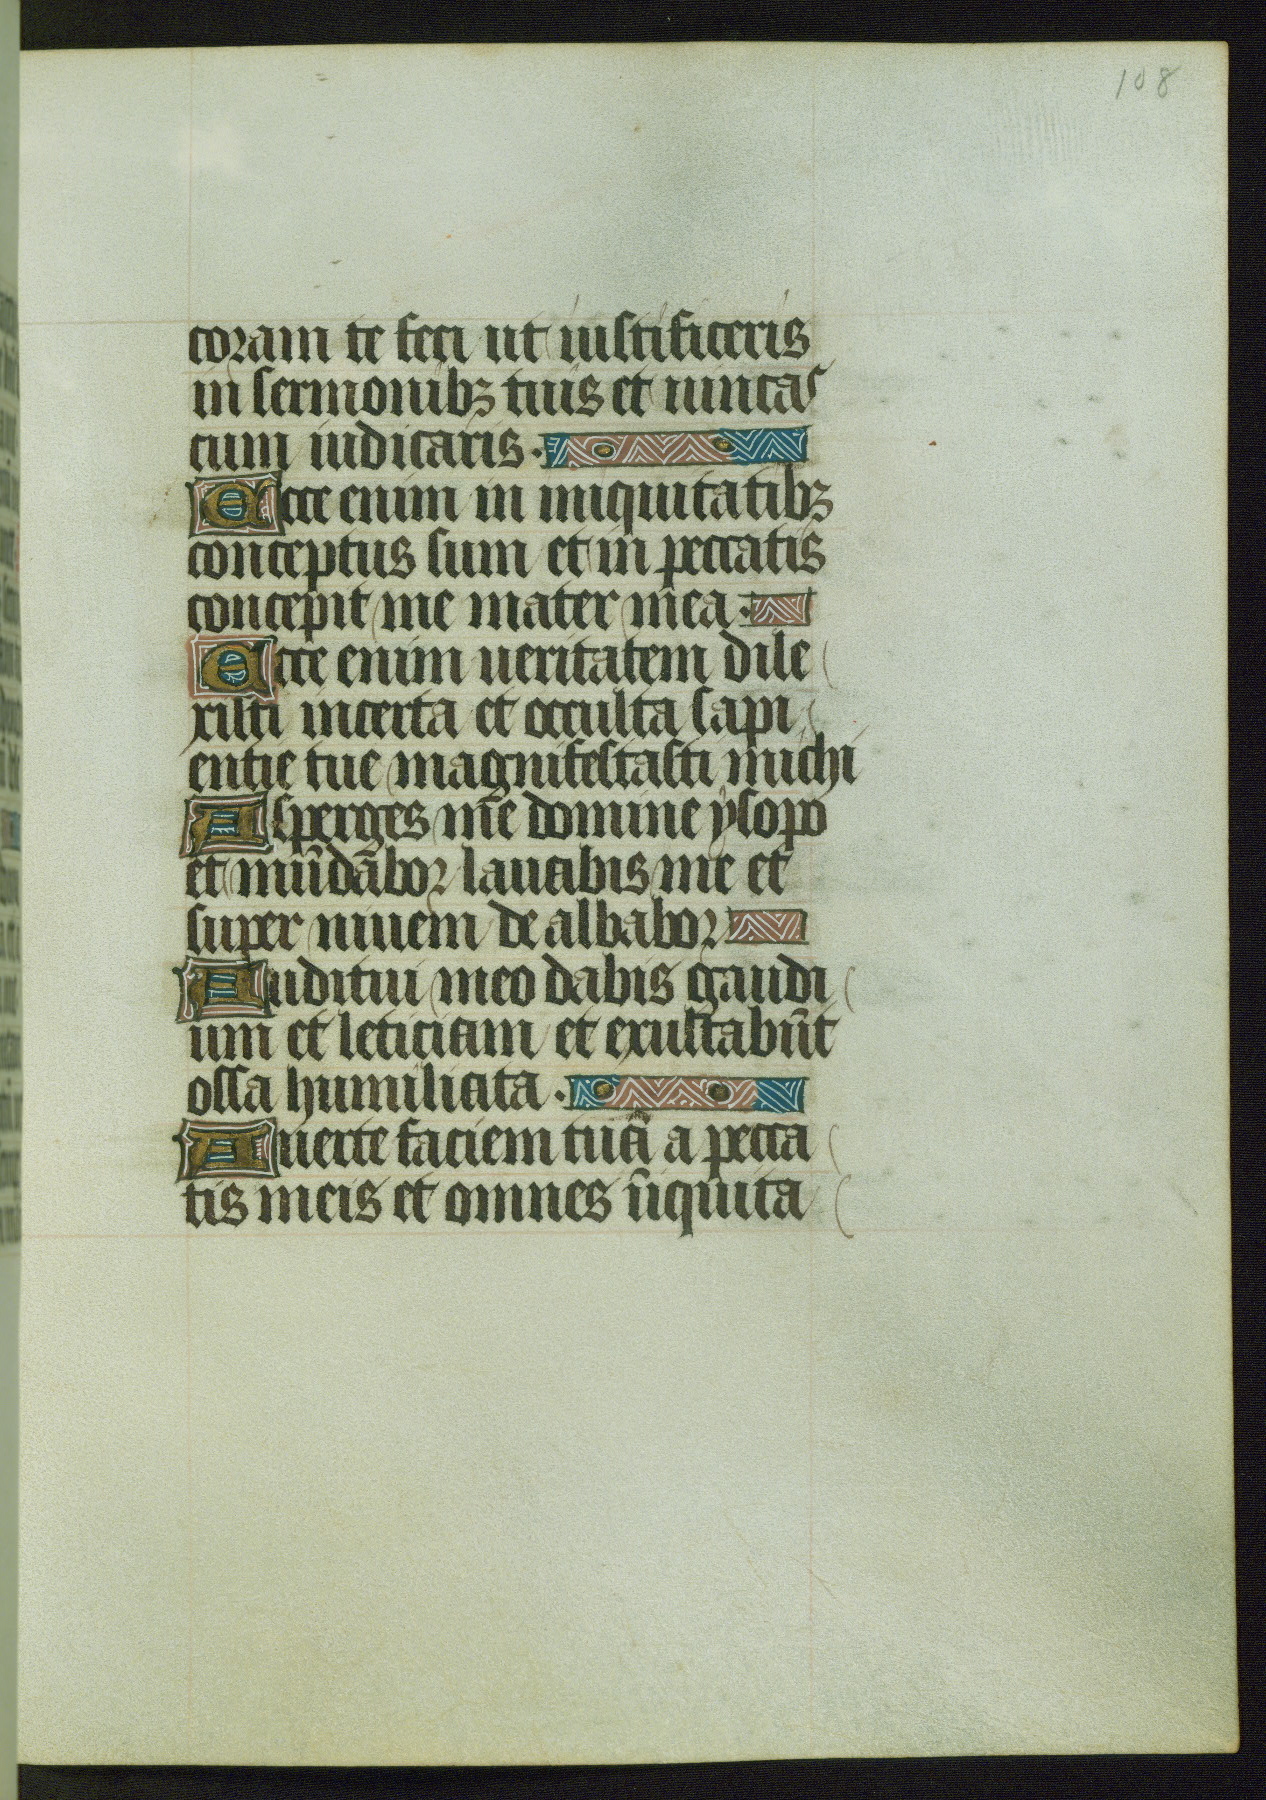 108
coram te feci ut iustificeris
in sermonibꝫ tuis et uincas
cum iudicaris.
Ecce enim in iniquitatibꝫ
conceptus sum et in peccatis
concepit me mater mea.
Ecce enim ueritatem dile
xisti incerta et occulta sapi
entie tue magnifestasti michi
Asperges me domine ysopo
et mūdābor lauabis me et
super niuem de albabor
Auditui meo dabis gaudi
um et leticiam et exultabūt
ossa humiliata.
Auerte faciem tuā a pecca
tis meis et omnes īiquita